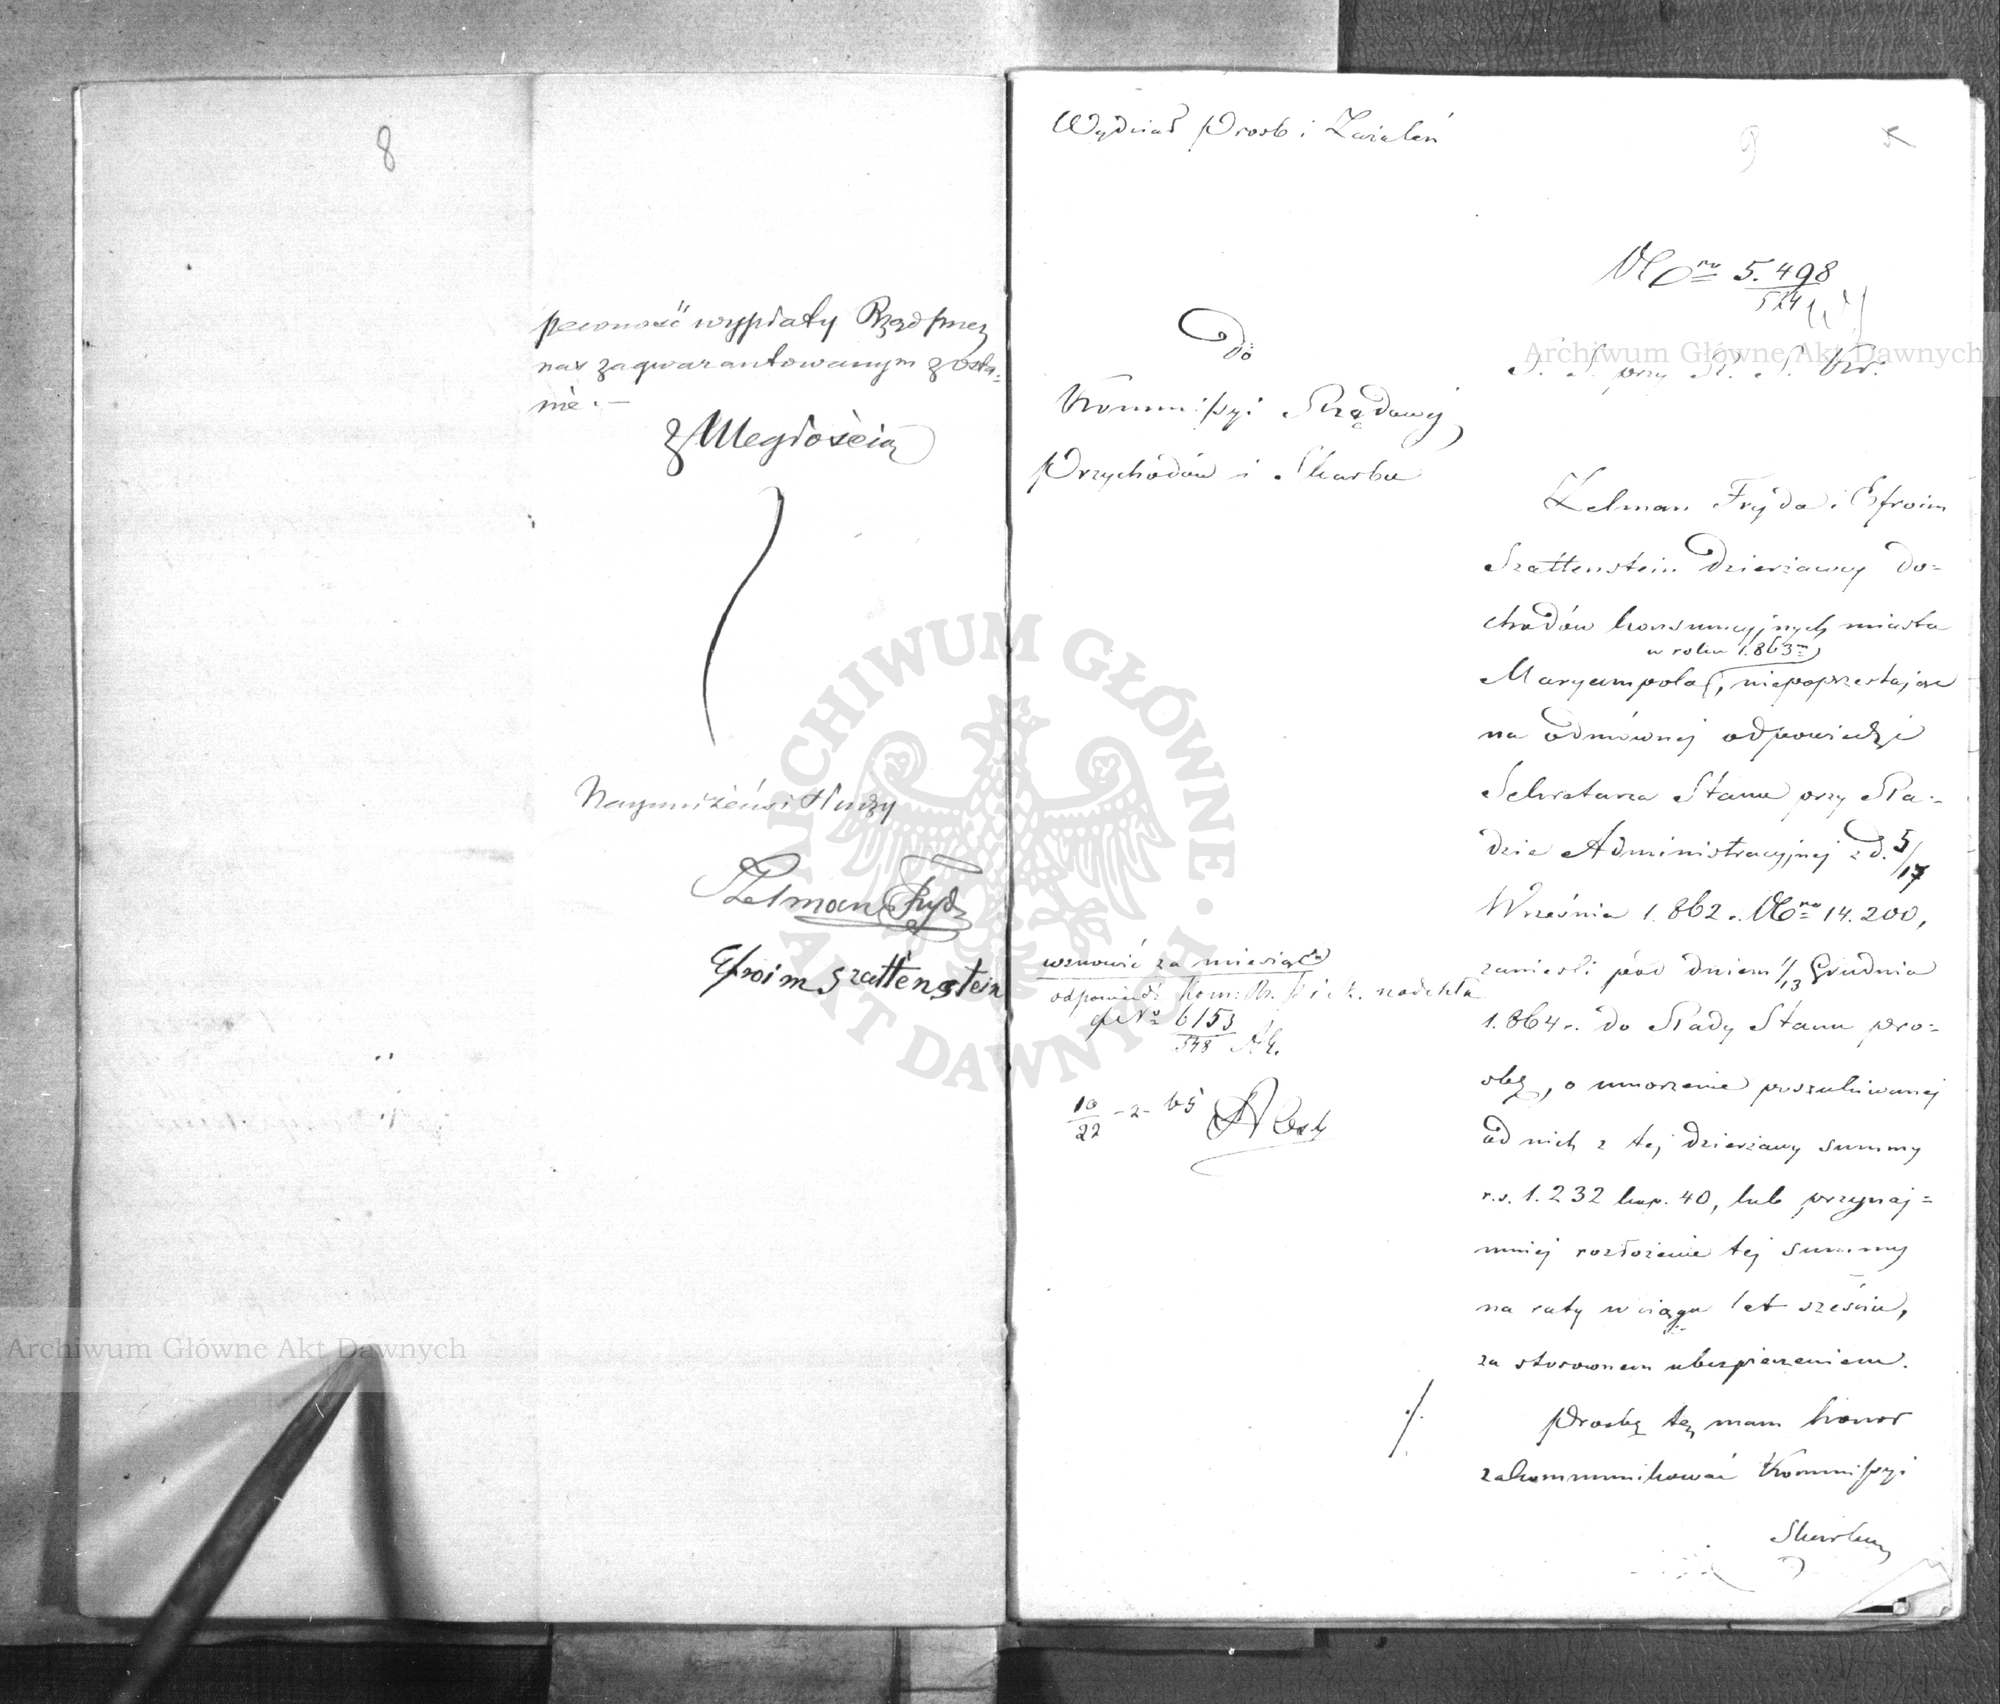 8
pewność wypłaty Rząd przez
nas zagwarantowanym zosta-
nie. —
Z Uległością
Najuniżeńsi Słudzy
Zelman Fryda
Efroim Szattenstein
Wydział Prosb i Zażaleń
9
No 5.498
524
Do
Kommissyi Rządowej
Przychodów i Skarbu
S. S. przy R. S. Kr.
Zelman Fryda i Efroim
Szattenstein dzierżawcy do-
chodów konsumcyjnych miasta
w roku 1.863
Maryampola, niepoprzestając
na odmównej odpowiedzi
Sekretarza Stanu przy Ra-
dzie Administracyjnej z d. 5/17
Września 1.862 r. No 14.200,
zanieśli pod dniem 1/13 Grudnia
1.864 r. do Rady Stanu proś-
bę, o umorzenie poszukiwanej
od nich z tej dzierżawy summy
r.s. 1.232 kop. 40, lub przynaj-
mniej rozłożenie tej summy
na raty w ciągu lat sześciu,
za stosownem ubezpieczeniem.
Prośbę tę mam honor
zakommunikować Kommissyi
Skarbu
wznowić za miesiąc
odpowiedź Kom: Rz. P i S. nadeszła
d No 6153
548
10/22 -2- 65
Archiwum Główne Akt Dawnych
Archiwum Główne Akt Dawnych
ARCHIWUM GŁÓWNE
AKT DAWNYCH